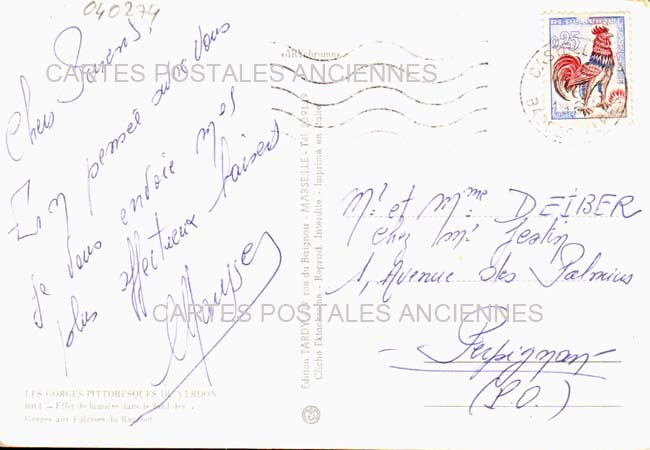 040274
Chers Parents,
En pensée avec vous
je vous envoie mes
plus affectueux baisers
CARTES POSTALES ANCIENNES
CARTES POSTALES ANCIENNES
LES GORGES PITTORESQUES DU VERDON
1014 - Effet de lumière dans le fond des
Gorges aux Falaises du Baucnet
Edition TARDY rue du Baignoir - MARSEILLE - Tél.
Cliché Ektachrome - Reprod. Interdite - Imprimé en Italie
0,25
Mr et Mme DEIBER
chez Mr Jestin
1, Avenue des Palmiers
Perpignan
(P.O.)